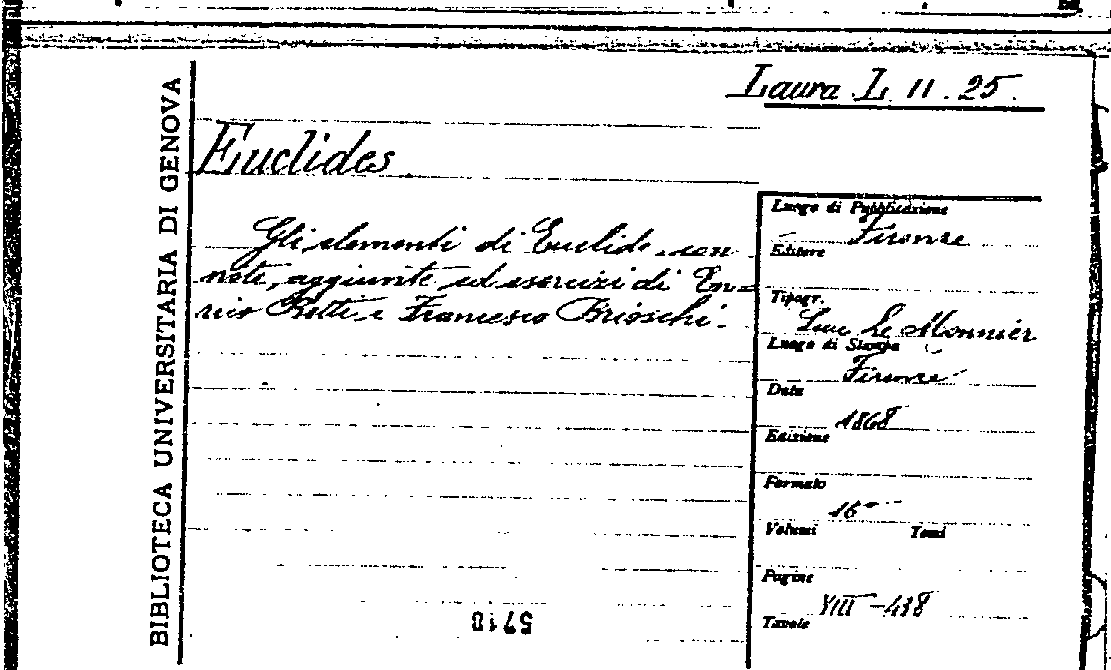 Laura L. 11. 25.
BIBLIOTECA UNIVERSITARIA DI GENOVA
Euclides
Gli elementi di Euclide con
note, aggiunte ed esercizi di En=
rico Betti e Francesco Brioschi.
Luogo di Pubblicazione
Firenze
Editore
Tipogr.
Succ. Le Monnier
Luogo di Stampa
Firenze
Data
1868
Edizione
Formato
16°
Volumi Tomi
Pagine
VIII-438
Tavole
5710